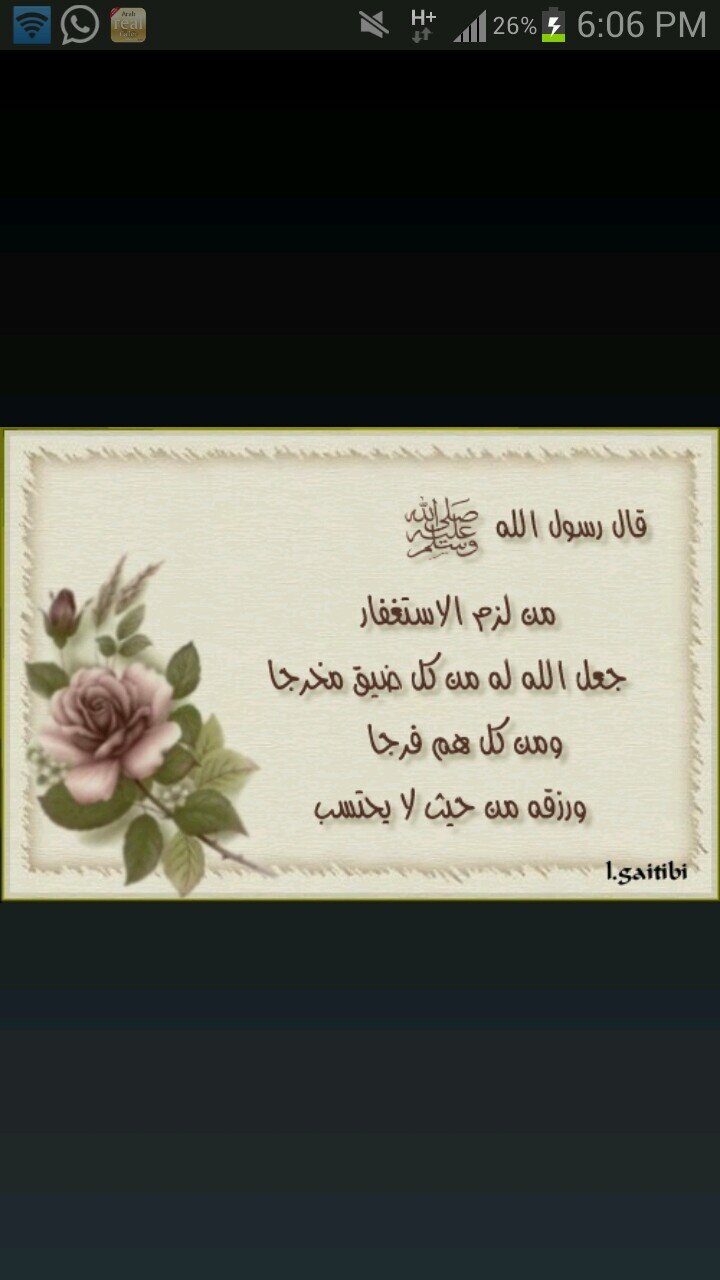 Arab real cafe
H+ 26% 6:06 PM
قال رسول الله ﷺ
من لزم الاستغفار
جعل الله له من كل ضيق مخرجا
ومن كل هم فرجا
ورزقه من حيث لا يحتسب
l.gaitibi